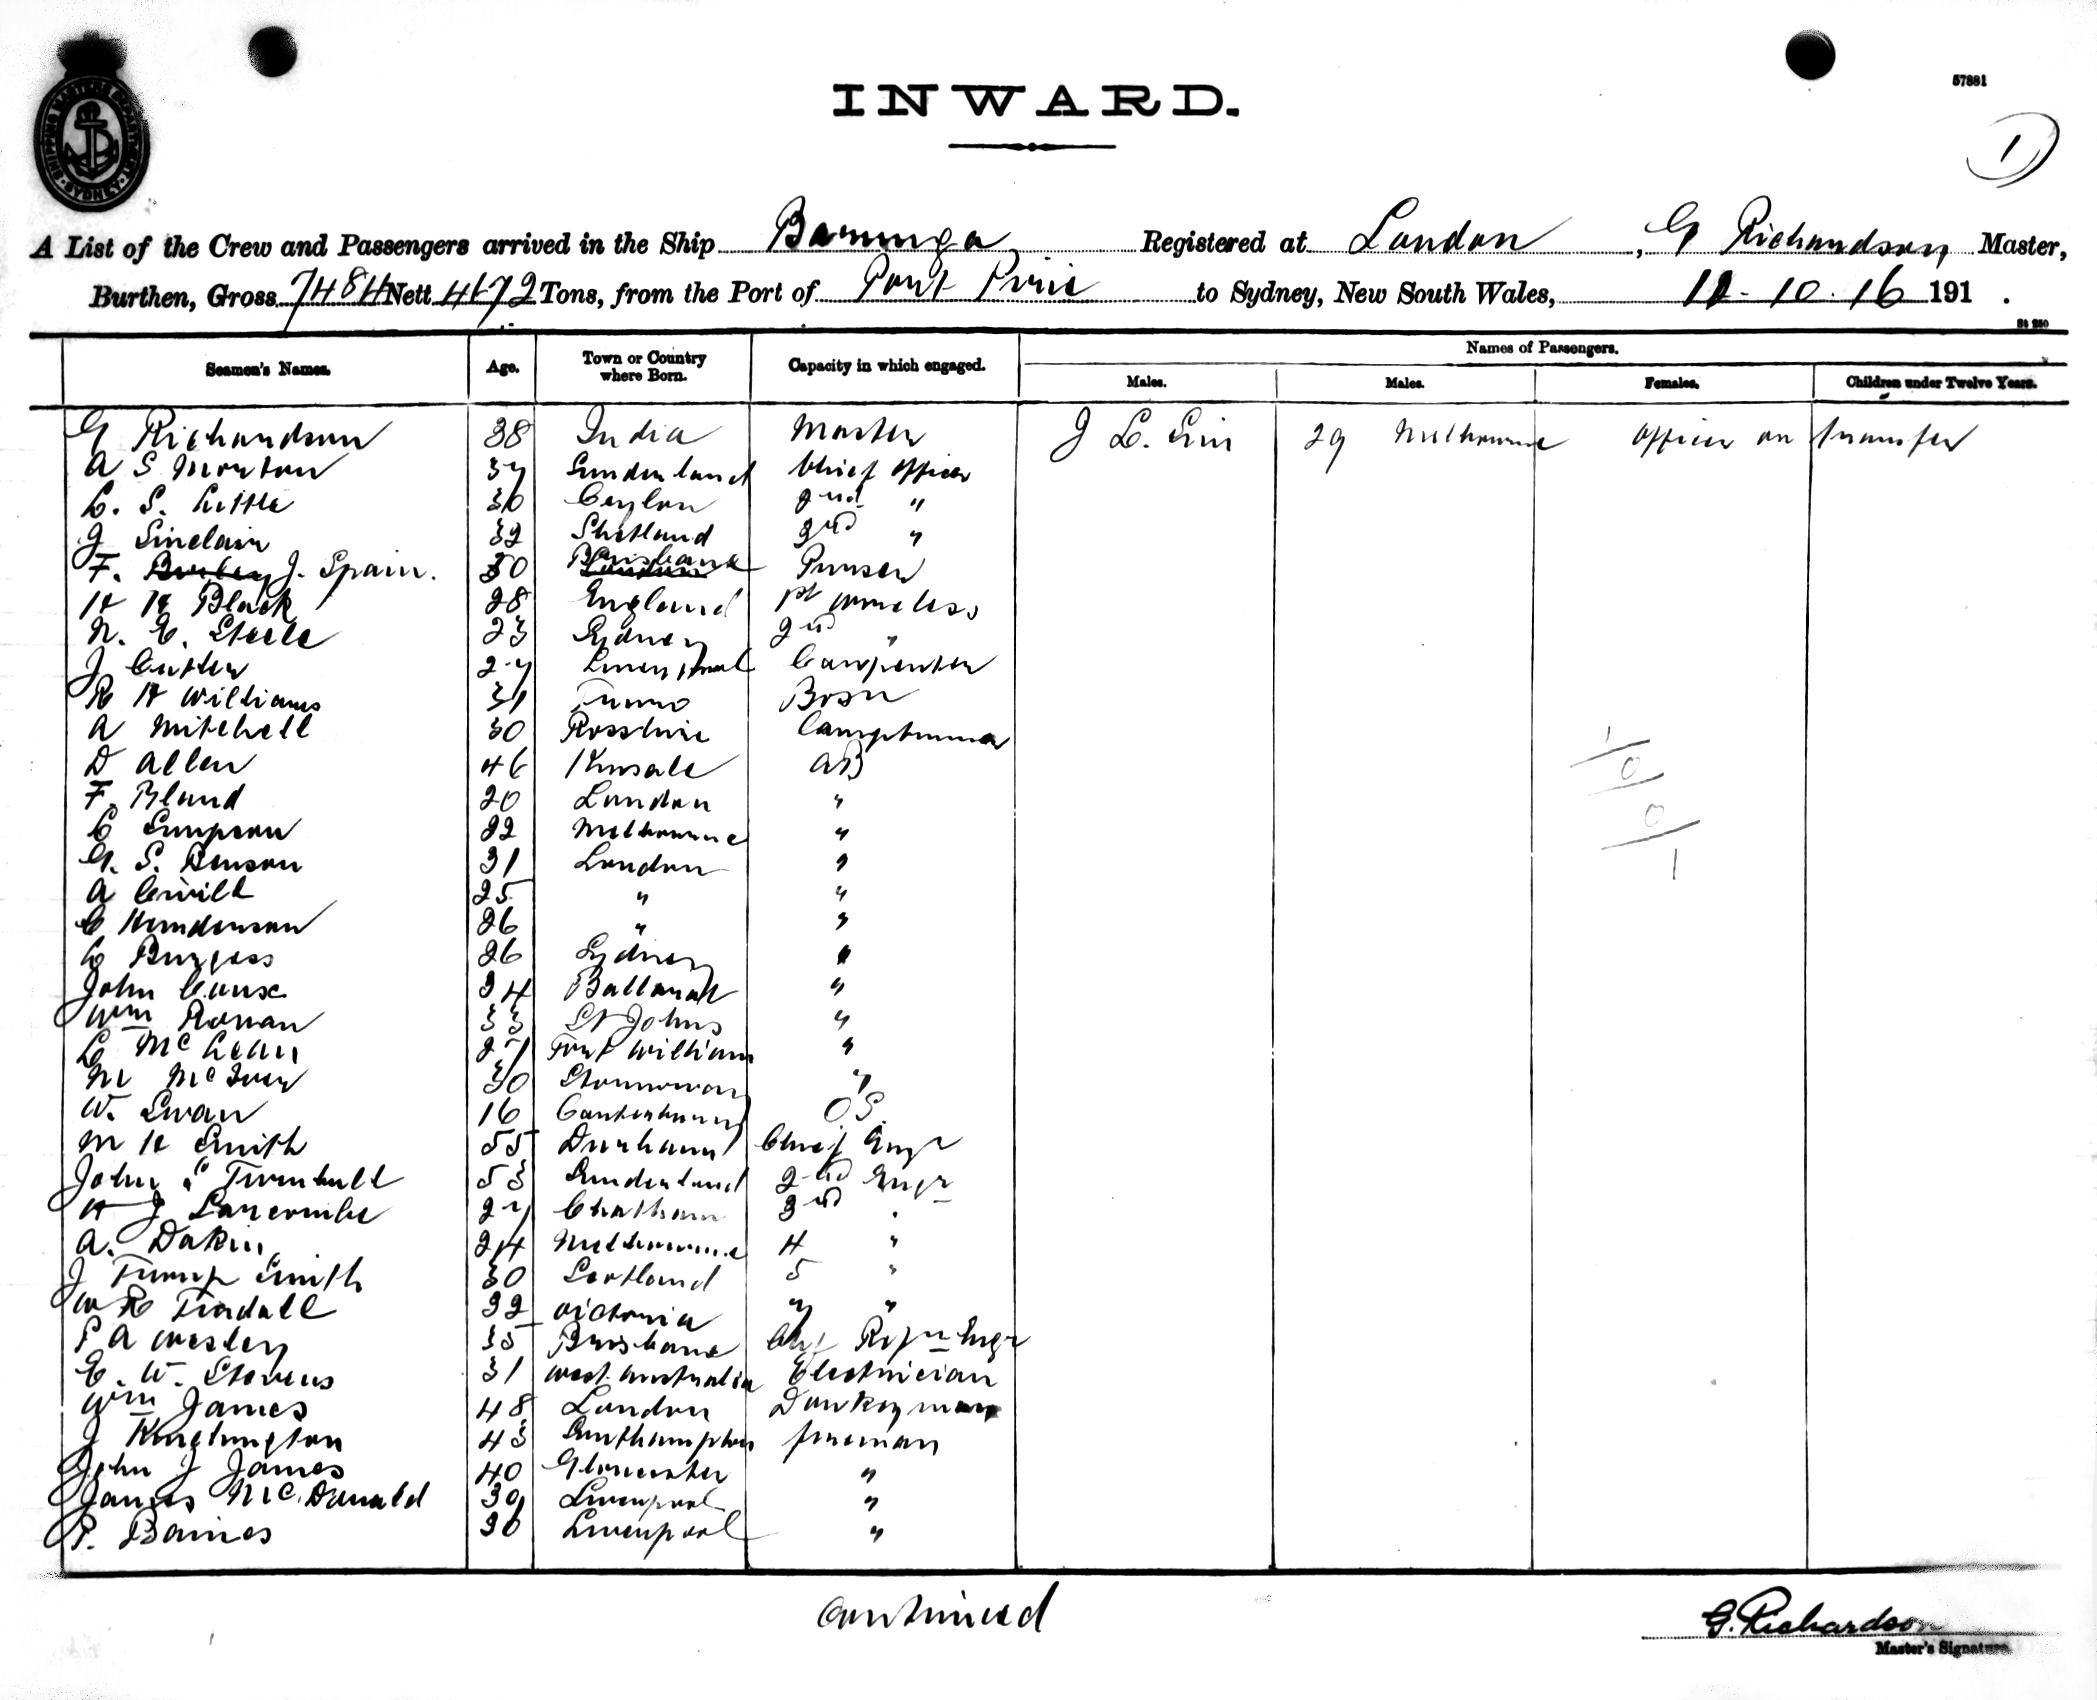 INWARD.
57881
1
SHIPPING MASTERS DEPARTMENT SYDNEY
A List of the Crew and Passengers arrived in the Ship Barunga Registered at London, G Richardson Master,
Burthen, Gross 7484 Nett 4672 Tons, from the Port of Port Pirie to Sydney, New South Wales, 12.10.16 191 .
St 250
Seamen's Names. Age. Town or Country where Born. Capacity in which engaged. Names of Passengers.
Males. Males. Females. Children under Twelve Years.
G Richardson 38 India Master J L. 29 Melbourne Officer on transfer
A S Morton 37 Sunderland Chief Officer
L. S. Little 30 Ceylon 2nd "
J Sinclair 32 Shetland 3rd "
F. J. Spain. 30 Brisbane London Purser
H H Black 28 England 1st wireless
N. C. Steele 23 Sydney 2nd "
J Cutler 27 Liverpool Carpenter
R H Williams 31 Truro Bosn
A Mitchell 30 Rosshire Lamptrimmer
D Allen 46 Kinsale AB
F. Bland 20 London "
C Simpson 22 Melbourne "
G. S. Benson 31 London "
A 25 " "
C Henderson 26 " "
C Burgess 26 Sydney "
John 24 Ballarat "
Wm Ronan 33 St Johns "
L McLean 27 Fort William "
M McIver 30 Stornoway "
W. Swan 16 Canterbury OS
M H Smith 55 Durham Chief Engr
John S Turnbull 53 Sunderland 2nd Engr
H J Larcombe 27 Chatham 3rd "
A. Dakin 24 Melbourne 4 "
J Turnp Smith 30 Scotland 5 "
W R Tindall 22 Victoria " "
P A Wesley 35 Brisbane Chf Refr Engr
C. W. Stevens 31 West Australia Electrician
Wm James 48 London Donkeyman
J 43 Southampton fireman
John J James 40 Gloucester "
James McDonald 30 Liverpool "
P. Baines 30 Liverpool "
1
0
0
1
Continued
G. Richardson
Master's Signature.